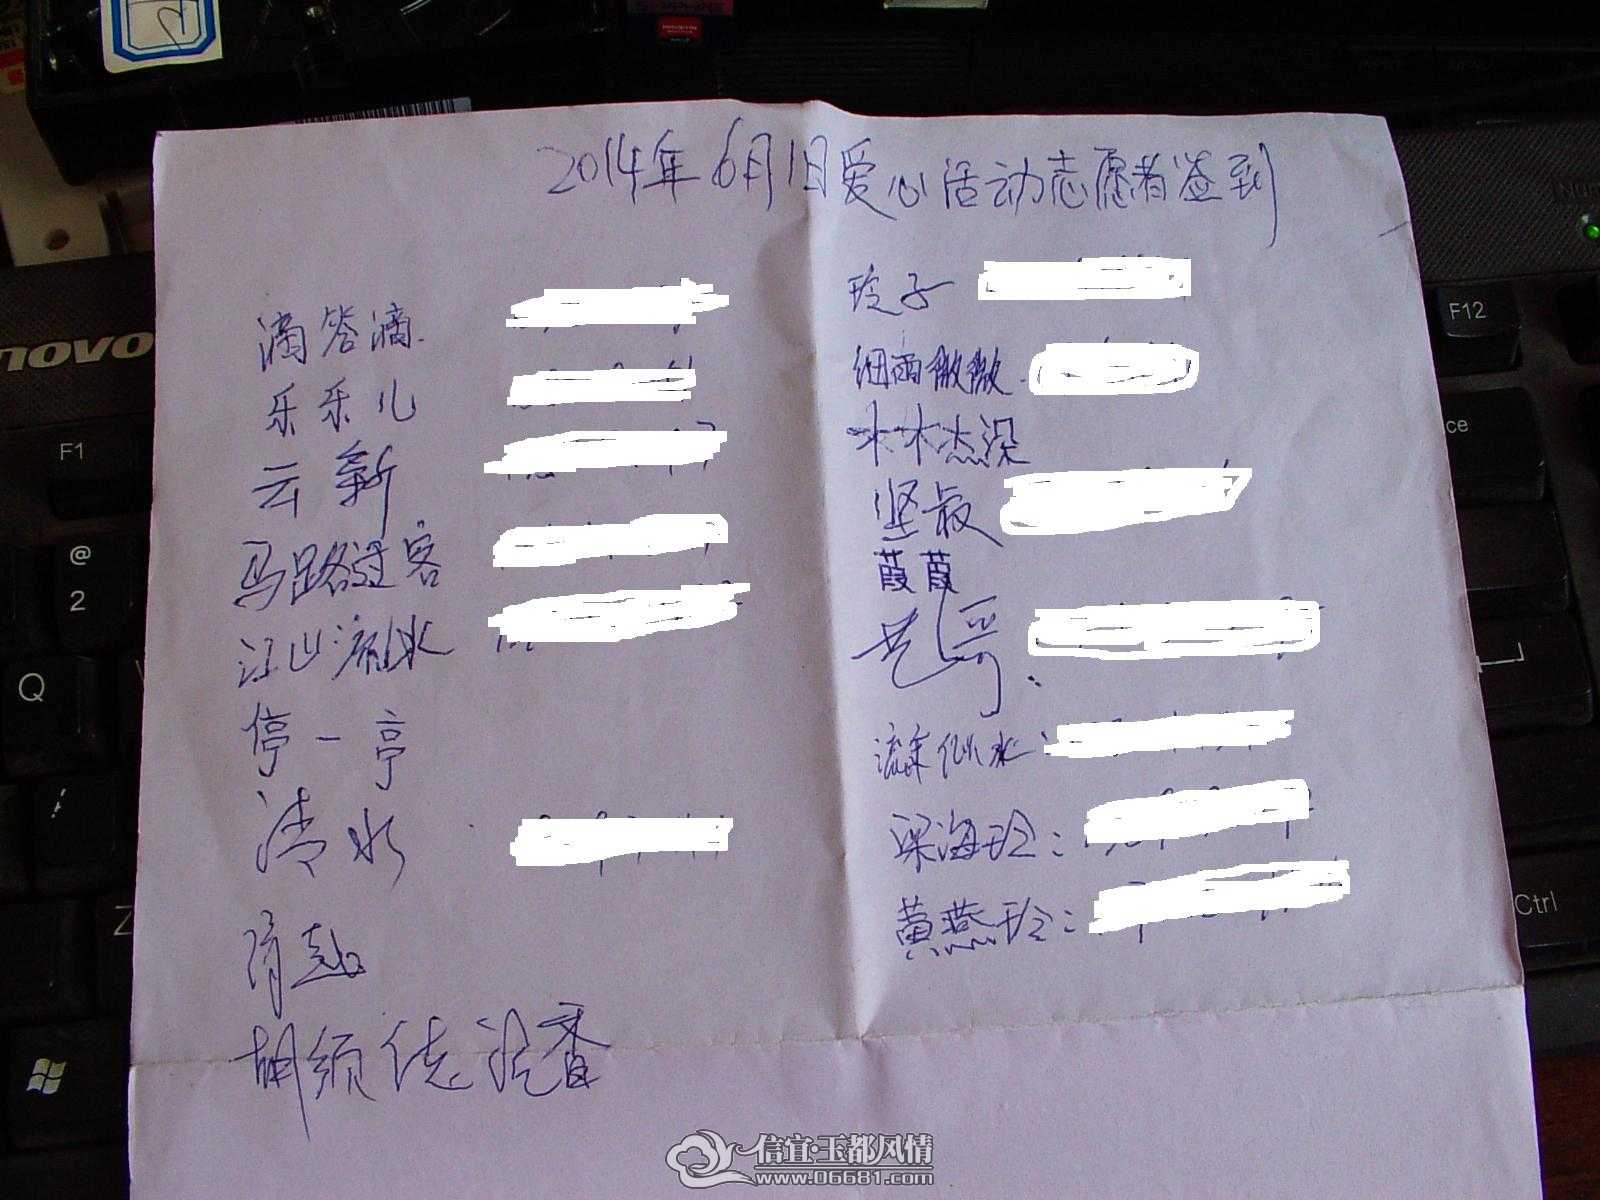 2014年6月1日爱心活动志愿者签到
滴答滴
乐乐儿
云新
马路过客
江山流水
停一亭
清水
胡须佬 沉香
玲子
细雨微微
木木杰深
坚叔
葭葭
艺哥:
流年似水:
梁海玲:
黄燕玲:
novo
F1
@
2
Q
Z
F12
ce
Ctrl
信宜·玉都风情
www.06681.com